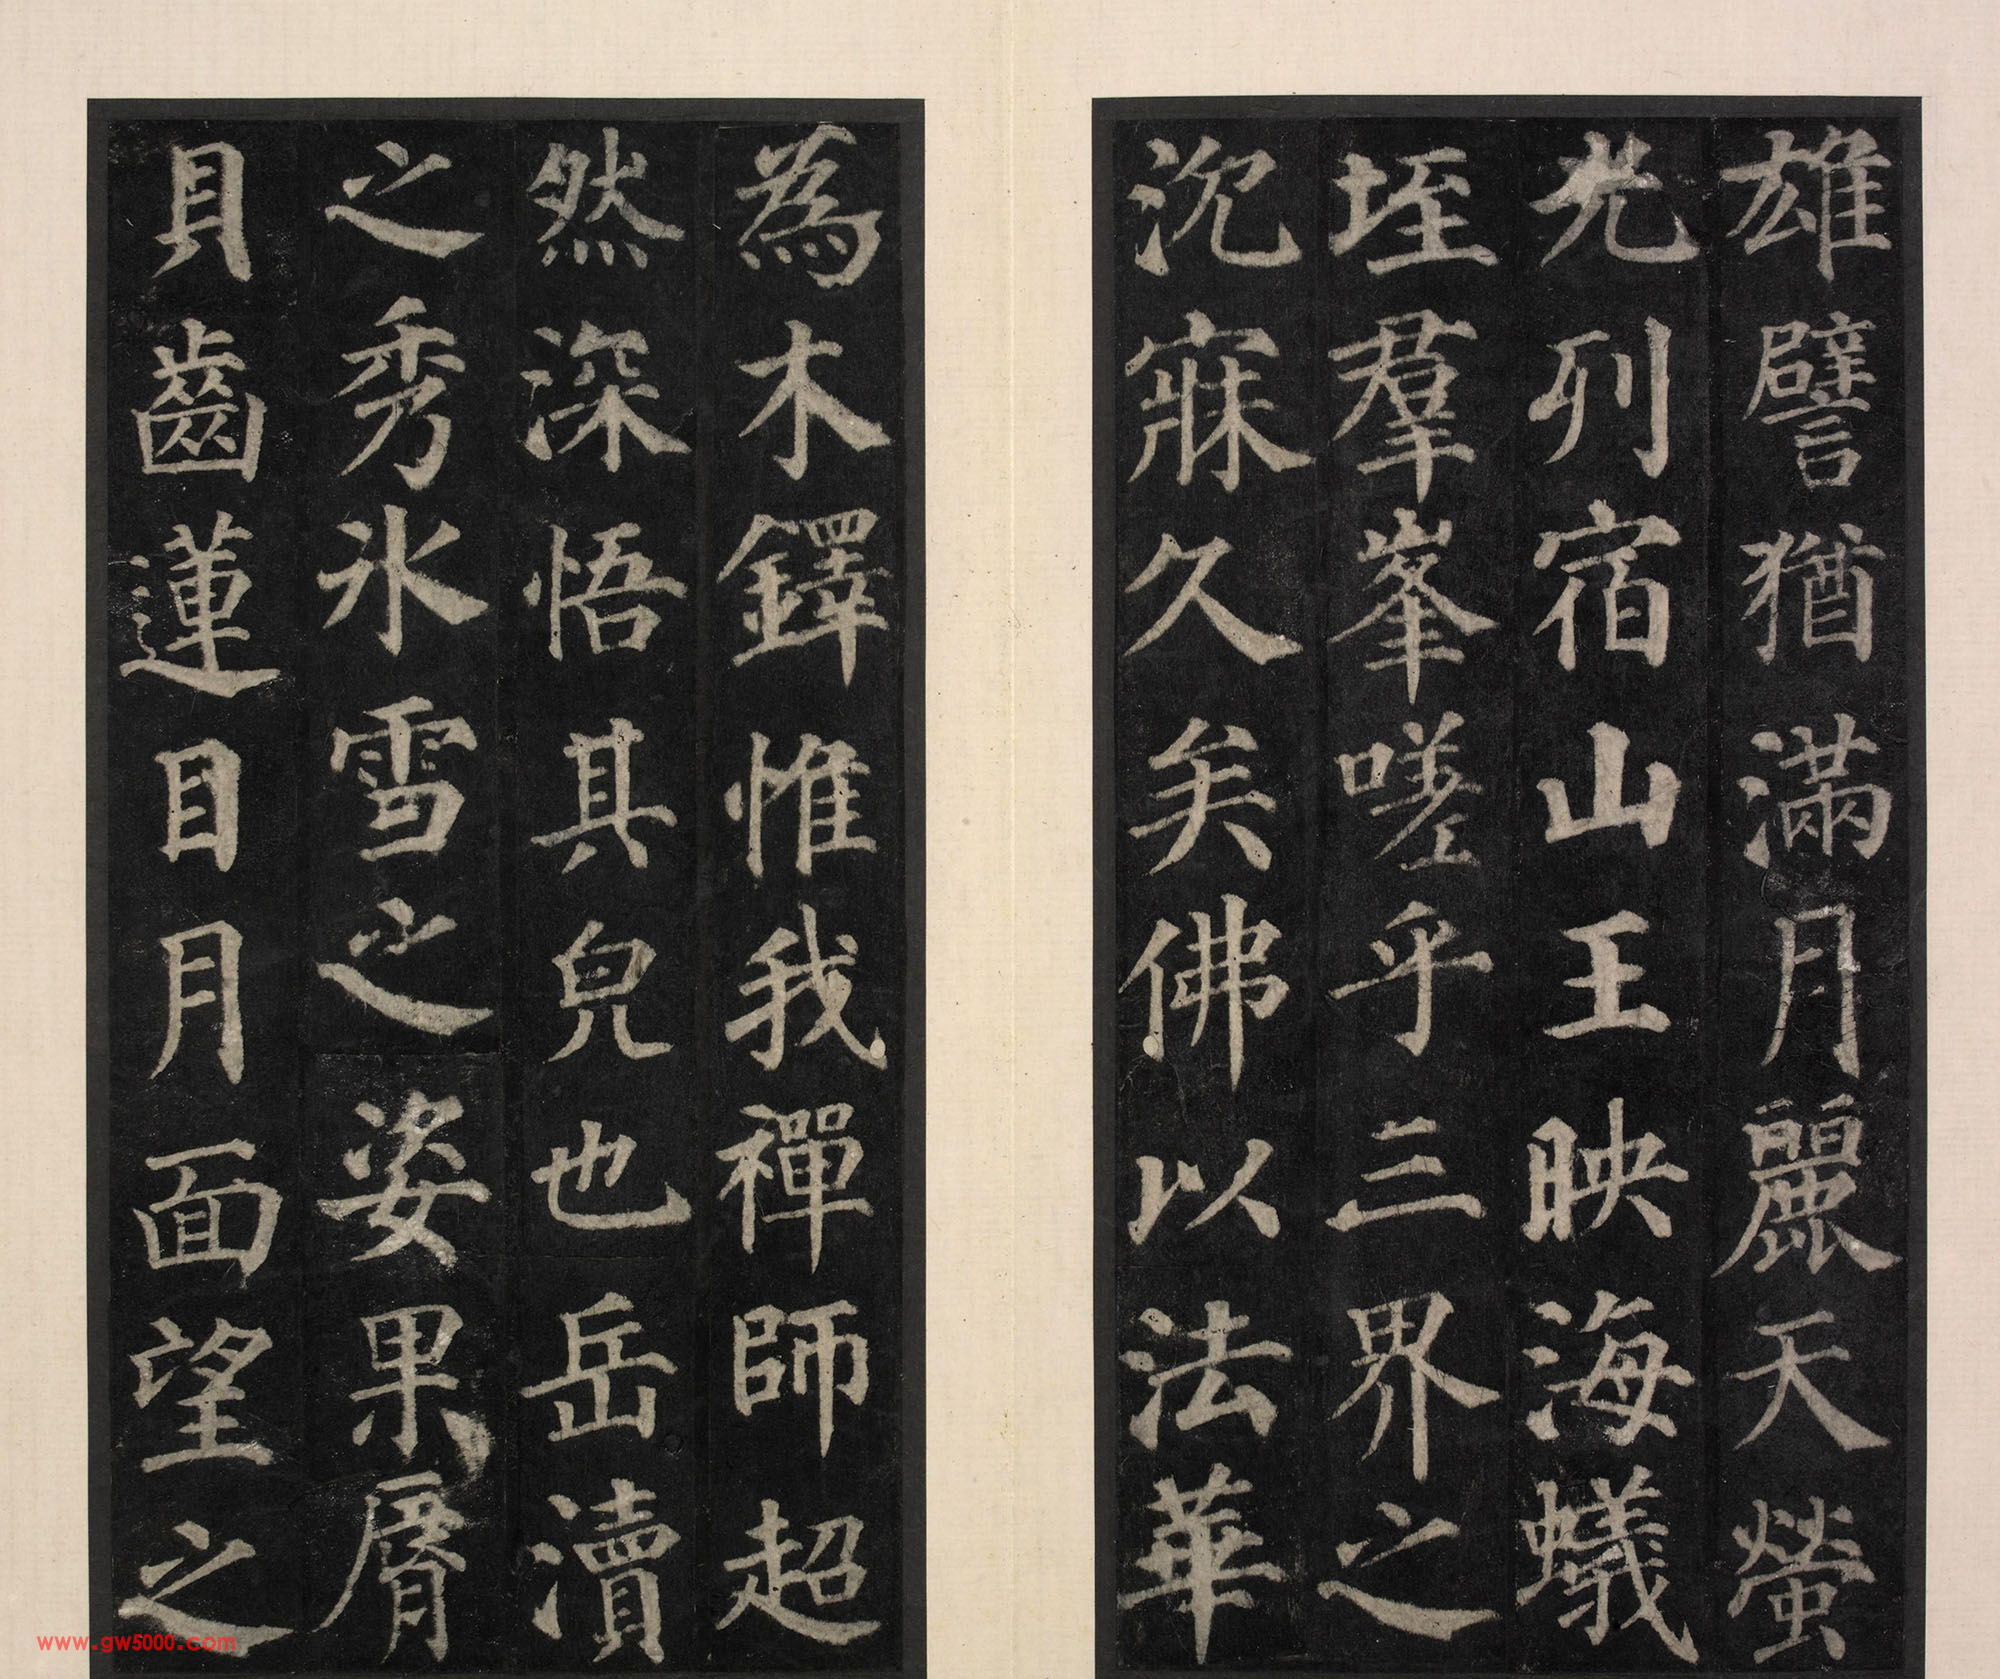 雄譬猶滿月麗天螢
光列宿山王映海蟻
垤羣峯嗟乎三界之
沉寐久矣佛以法華
為木鐸惟我禪師超
然深悟其皃也岳瀆
之秀冰雪之姿果脣
貝齒蓮目月面望之
www.gw5000.com